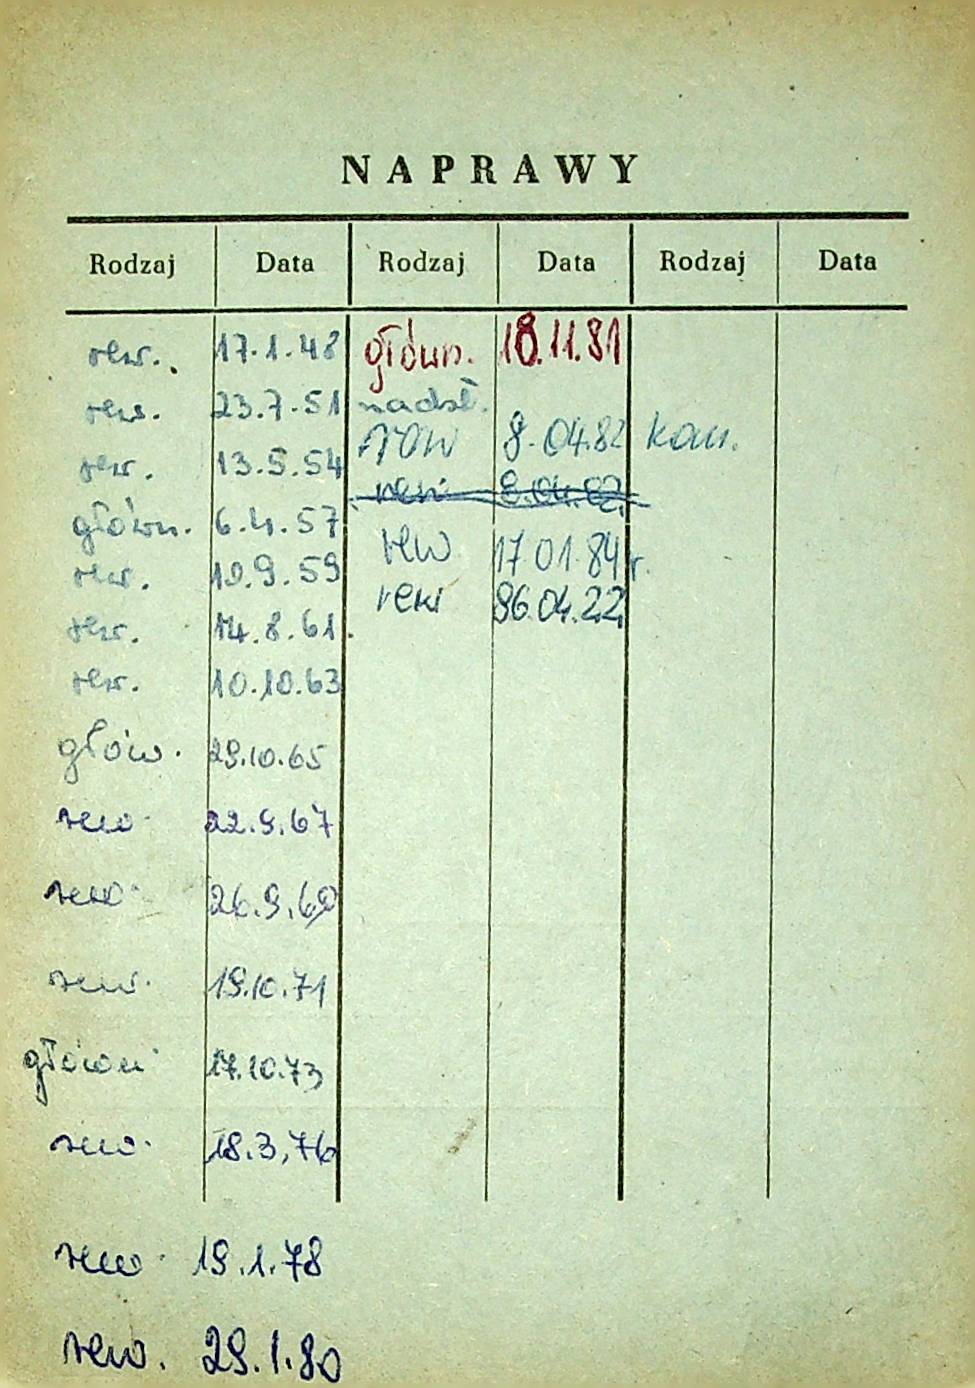 NAPRAWY
Rodzaj Data Rodzaj Data Rodzaj Data
rew. 17.1.48
rew. 23.7.51
rew. 13.5.54
główn. 6.4.57
rew. 10.9.59
rew. 14.8.61.
rew. 10.10.63
główn. 29.10.65
rew. 22.9.67
rew. 26.9.69
rew. 19.10.71
główn. 17.10.73
rew. 18.3.76
rew. 19.1.78
rew. 29.1.80
główn. 18.11.81
nadst.
rew 8.04.82 kan.
rew 8.04.82
rew 17.01.84 r.
rew 86.04.22